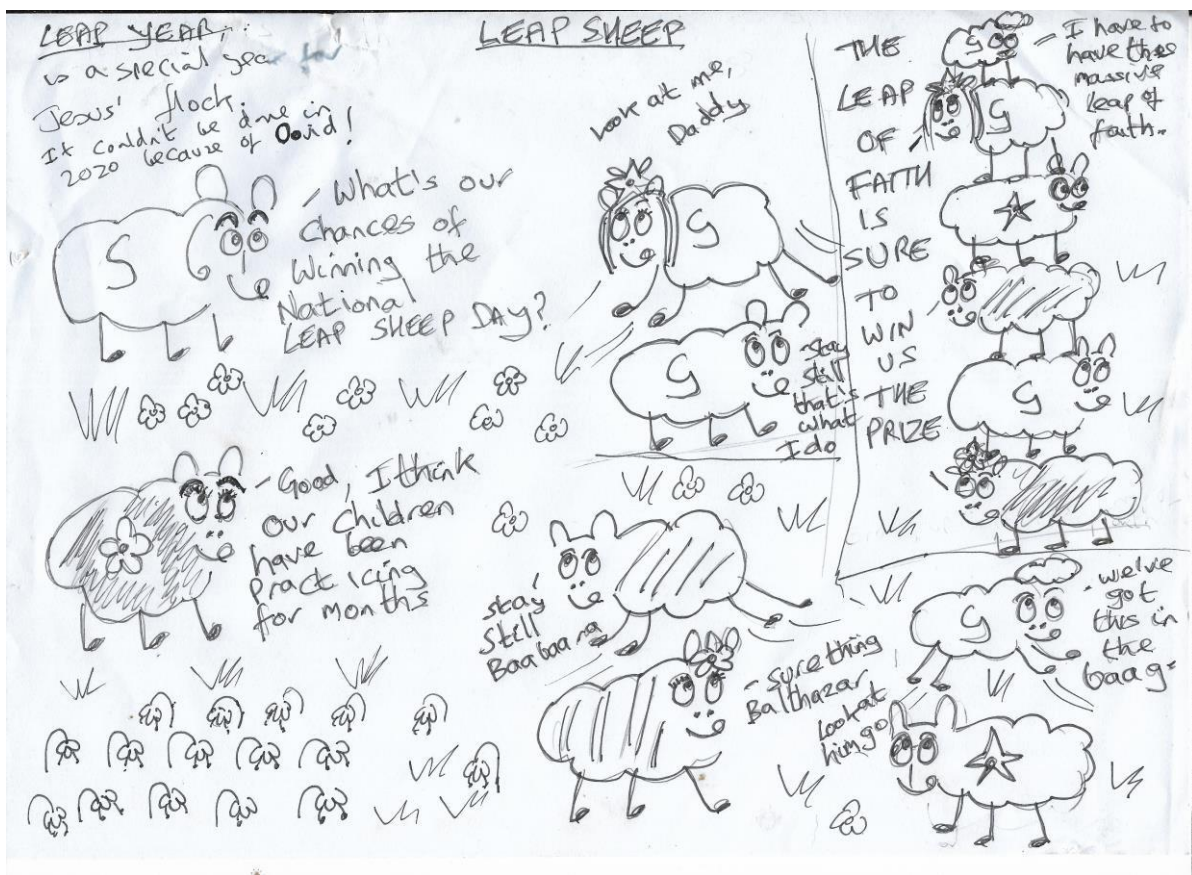 LEAP YEAR
is a special year for
Jesus' flock.
It couldn't be done in
2020 because of Ovid!
LEAP SHEEP
S
- What's our
chances of
winning the
National
LEAP SHEEP DAY?
- Good, I think
our children
have been
practicing
for months
Look at me,
Daddy.
G
G
- Stay
still
that's
what
I do
Stay
still
Baabaara
- Sure thing
Balthazar
Look at
him go
THE
LEAP
OF
FAITH
IS
SURE
TO
WIN
US
THE
PRIZE
G
- I have to
have this
massive
leap of
faith.
G
G
G
- we've
got
this in
the
baag-